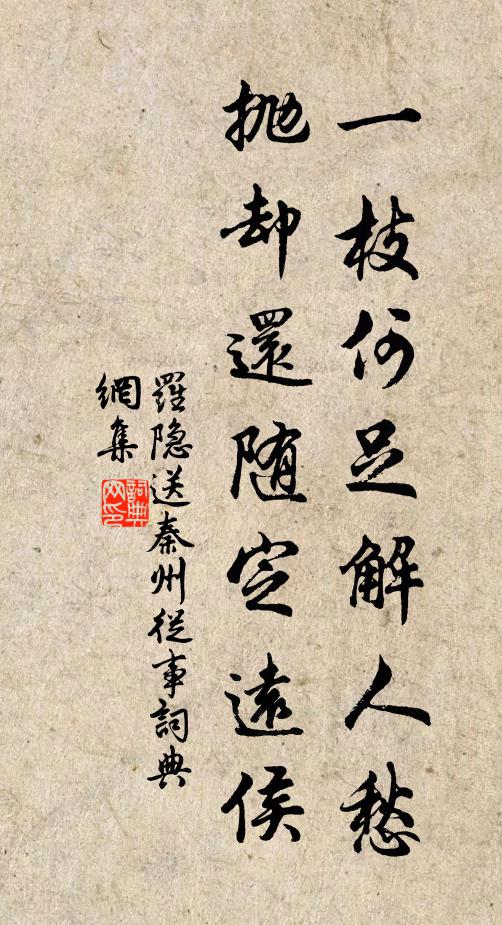 一枝何足解人愁
抛却還随定遠侯
羅隐送秦州從事詞典
網集
詞典
网印